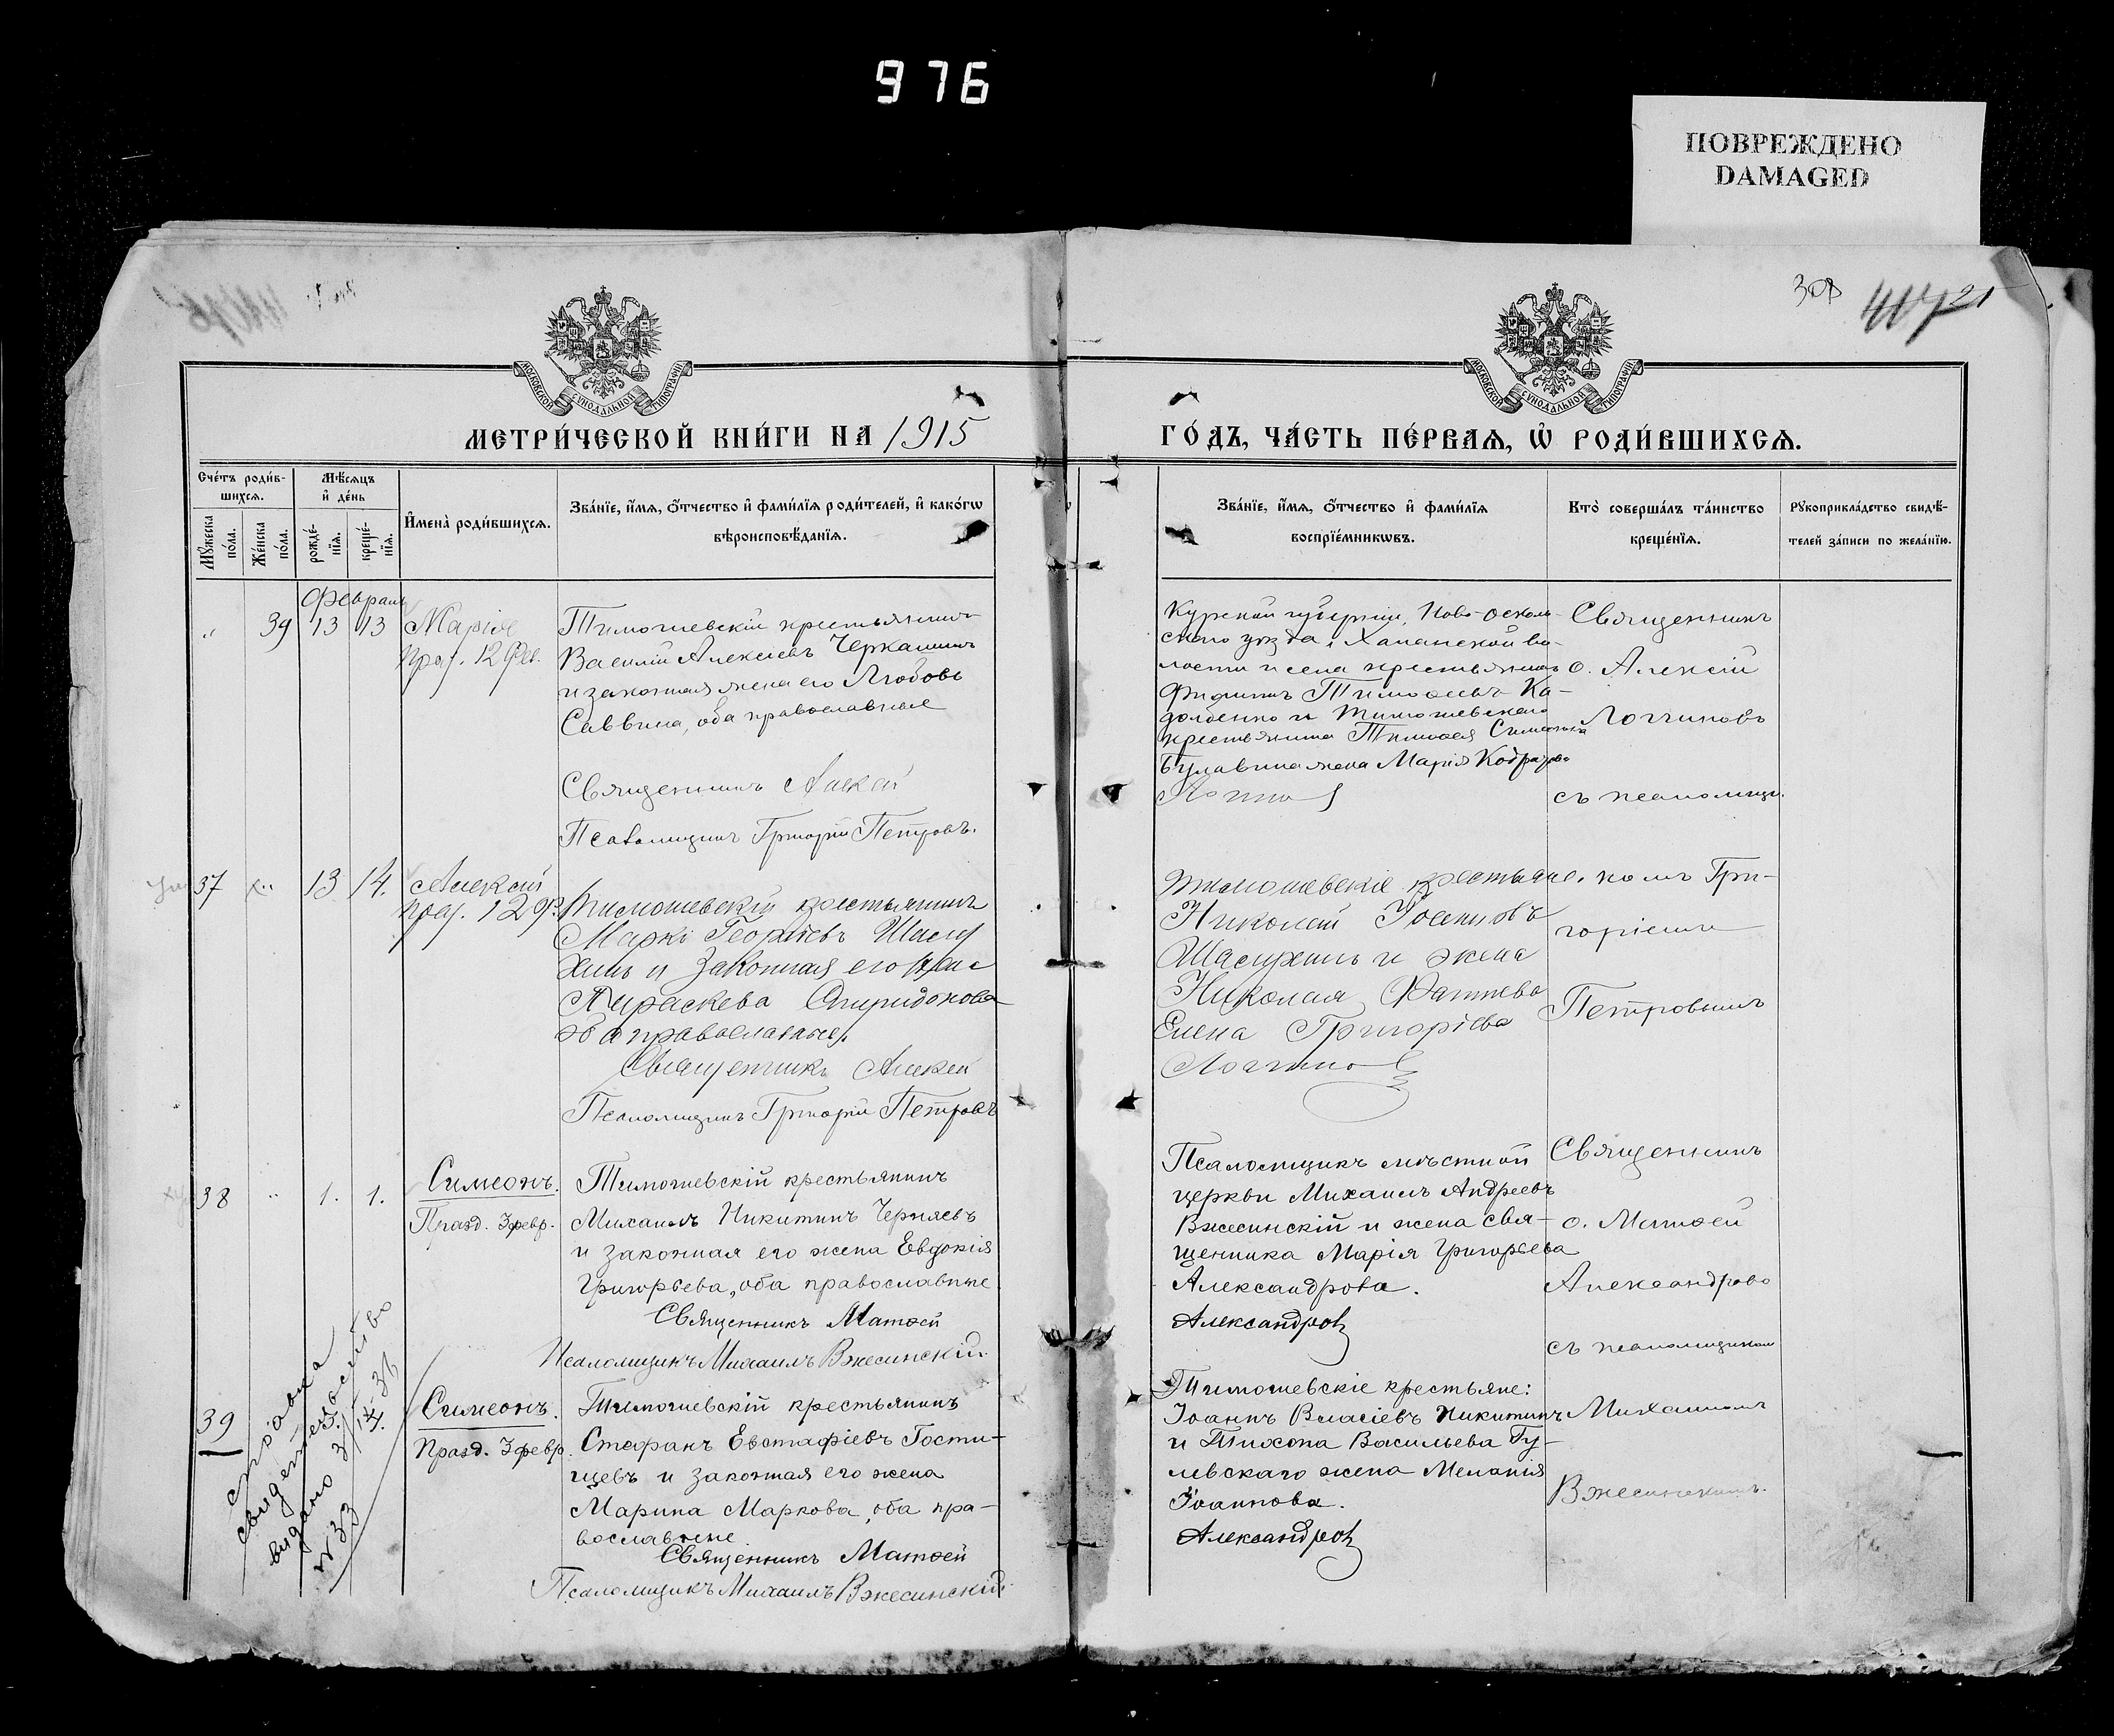 976
ПОВРЕЖДЕНО
DAMAGED
МОСКОВСКОЙ СУНОДАЛЬНОЙ ТИПОГРАФІИ
МОСКОВСКОЙ СУНОДАЛЬНОЙ ТИПОГРАФІИ
МЕТРИ́ЧЕСКОЙ КНИ́ГИ НА 1915
ГО́ДЪ, ЧА́СТЬ ПЕ́РВАѦ, Ѡ҆ РОДИ́ВШИХСѦ.
Сче́тъ роди́в-
шихсѧ.
Мѣ́сѧцъ
и҆ де́нь
Мꙋ́жеска
по́ла.
Же́нска
по́ла.
рожде́-
нїѧ.
креще́-
нїѧ.
И҆мена̀ роди́вшихсѧ.
Зва́нїе, и҆́мѧ, ѻ҆́тчество и҆ фами́лїѧ роди́телей, и҆ како́гѡ
вѣроисповѣ́данїѧ.
Зва́нїе, и҆́мѧ, ѻ҆́тчество и҆ фами́лїѧ
воспрїе́мникѡвъ.
Кто̀ соверша́лъ та́инство
креще́нїѧ.
Рꙋкоприкла́дство свидѣ́-
телей за́писи по жела́нїю.
Февраль
" 39 13 13 Марія
12 Фев.
Тимошевскій крестьянинъ
Василій Алексіевъ Черкашинъ
и законная жена его Любовь
Саввина, оба православные
Священникъ Алексій
Псаломщикъ Григорій Петровъ.
Курской губерніи, Ново-Осколь-
скаго уѣзда, Халанской во-
лости и села крестьянинъ
Тимофеевъ Ка-
долбенко и Тимошевскаго
крестьянина Тимофея Симеонова
Булавина жена Марія
Священникъ
о. Алексій
Логгиновъ
съ псаломщи-
37 " 13 14. Алексій
Тимошевскій крестьянинъ
Маркъ Георгіевъ
и законная его жена
Параскева Спиридонова
оба православные.
Священникъ Алексій
Псаломщикъ Григорій Петровъ
Тимошевскіе крестьяне.
Николай
и жена
Николая
Елена Григоріева
Логгинов
комъ Гри-
горіемъ
Петровымъ
38 " 1. 1. Симеонъ.
Празд. 3 февр.
Тимошевскій крестьянинъ
Михаилъ Никитинъ Черняевъ
и законная его жена Евдокія
Григорьева, оба православные.
Священникъ Матѳей
Псаломщикъ Михаилъ Вжесинскій.
Псаломщикъ мѣстной
церкви Михаилъ Андреевъ
Вжесинскій и жена свя-
щенника Марія Григорьева
Александрова.
Александровъ
Священникъ
о. Матѳей
Александровъ
съ псаломщикомъ
39
справка
свидетельство
выдано
№ 33
Симеонъ.
Празд. 3 февр.
Тимошевскій крестьянинъ
Стефанъ Евстафіевъ Гости-
щевъ и законная его жена
Марина Маркова, оба пра-
вославные.
Священникъ Матѳей
Псаломщикъ Михаилъ Вжесинскій.
Тимошевскіе крестьяне:
Іоаннъ Власіевъ Никитинъ
и Тихона Васильева Гу-
левскаго жена Меланія
Іоаннова.
Александровъ
Михаиломъ
Вжесинскимъ.